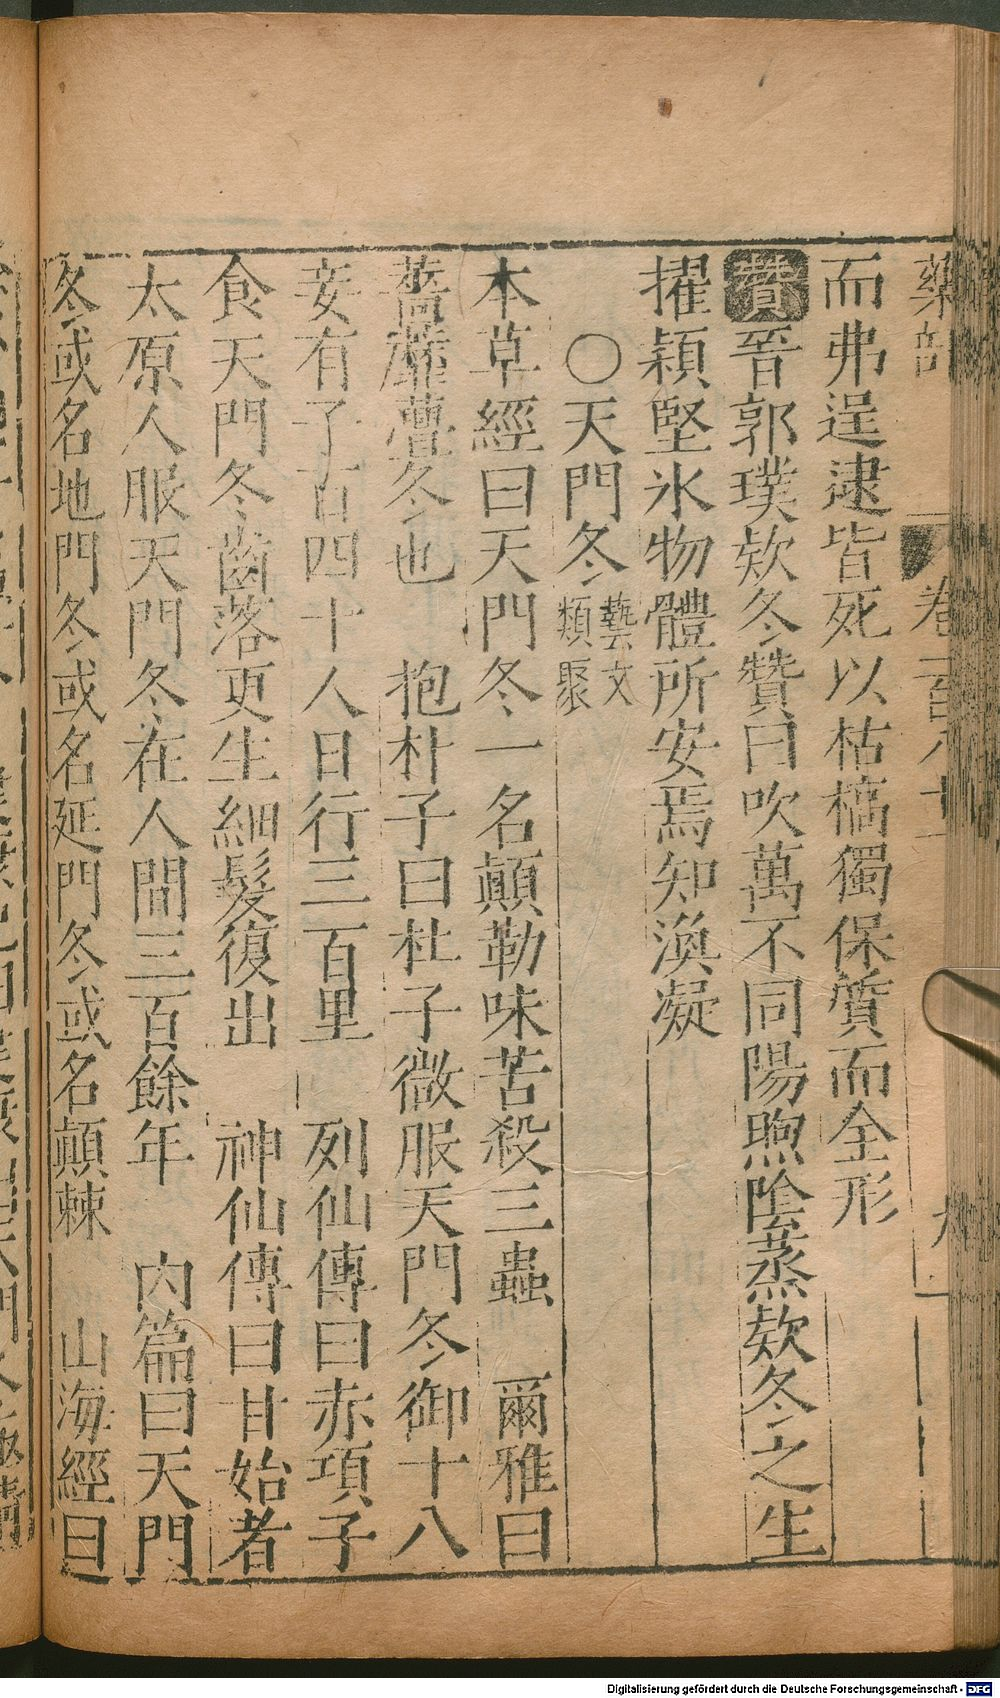 藥部 卷之百八十一 九
而弗逞逮皆死以枯槁獨保質而全形
贊晉郭璞款冬贊曰吹萬不同陽煦陰蒸款冬之生
擢穎堅氷物體所安焉知渙凝
〇天門冬藝文類聚
本草經曰天門冬一名顛勒味苦殺三蟲 爾雅曰
蘠蘼虋冬也 抱朴子曰杜子微服天門冬御十八
妾有子百四十人日行三百里 列仙傳曰赤項子
食天門冬齒落更生細髮復出 神仙傳曰甘始者
太原人服天門冬在人間三百餘年 內篇曰天門
冬或名地門冬或名延門冬或名顛棘 山海經曰
Digitalisierung gefördert durch die Deutsche Forschungsgemeinschaft - DFG